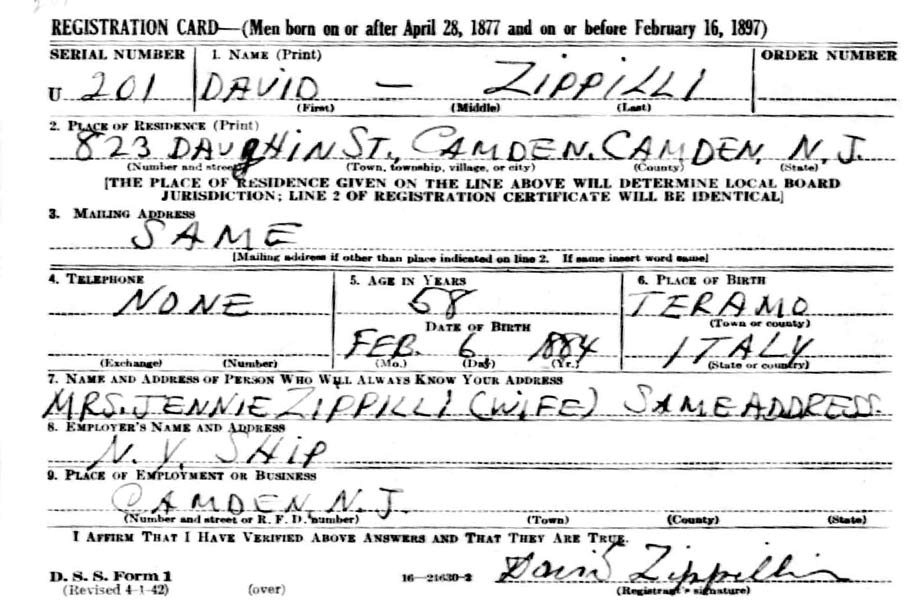 REGISTRATION CARD—(Men born on or after April 28, 1877 and on or before February 16, 1897)
SERIAL NUMBER 1. NAME (Print) ORDER NUMBER
U 201 DAVID — ZIPPILLI
(First) (Middle) (Last)
2. PLACE OF RESIDENCE (Print)
823 ST., CAMDEN. CAMDEN, N.J.
(Number and street) (Town, township, village, or city) (County) (State)
[THE PLACE OF RESIDENCE GIVEN ON THE LINE ABOVE WILL DETERMINE LOCAL BOARD
JURISDICTION; LINE 2 OF REGISTRATION CERTIFICATE WILL BE IDENTICAL]
3. MAILING ADDRESS
SAME
[Mailing address if other than place indicated on line 2. If same insert word same]
4. TELEPHONE 5. AGE IN YEARS 6. PLACE OF BIRTH
NONE 58 TERAMO
DATE OF BIRTH (Town or county)
FEB. 6 1884 ITALY
(Exchange) (Number) (Mo.) (Day) (Yr.) (State or country)
7. NAME AND ADDRESS OF PERSON WHO WILL ALWAYS KNOW YOUR ADDRESS
MRS. JENNIE ZIPPILLI (WIFE) SAME ADDRESS.
8. EMPLOYER'S NAME AND ADDRESS
N.Y. SHIP
9. PLACE OF EMPLOYMENT OR BUSINESS
CAMDEN, N.J.
(Number and street or R. F. D. number) (Town) (County) (State)
I AFFIRM THAT I HAVE VERIFIED ABOVE ANSWERS AND THAT THEY ARE TRUE.
D. S. S. Form 1 16—21630-2 David Zippilli
(Revised 4-1-42) (over) (Registrant's signature)